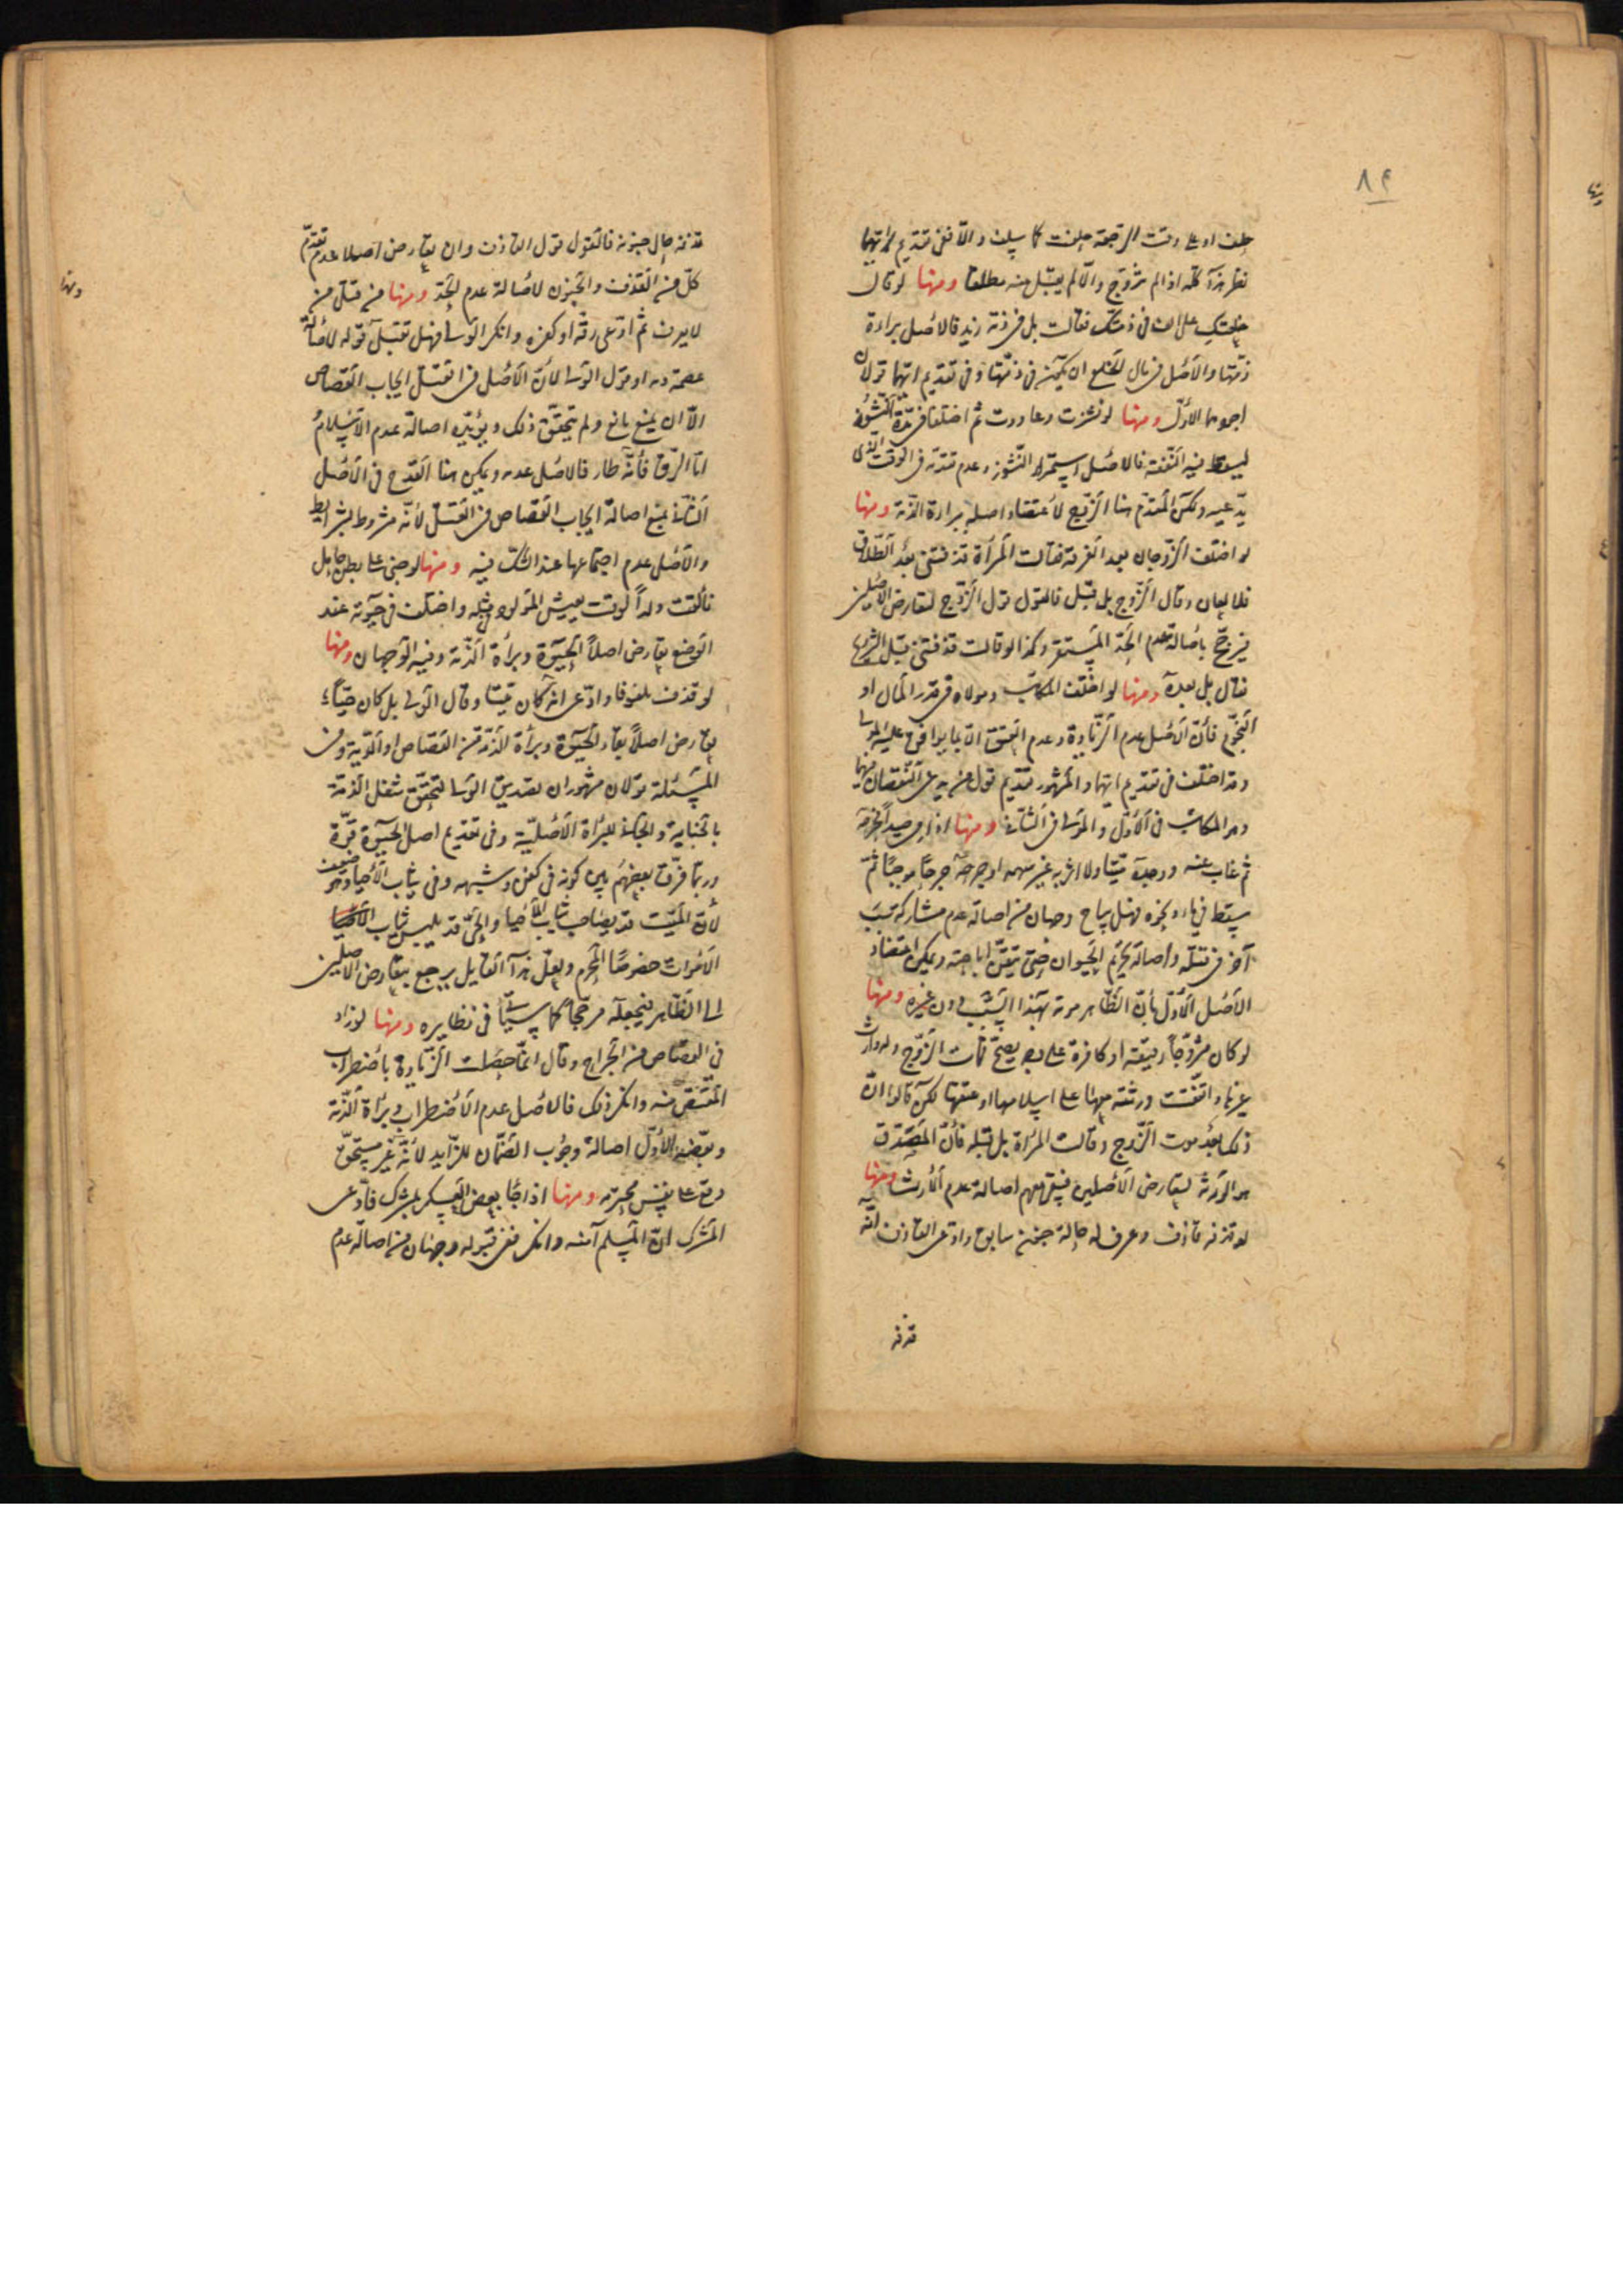 ٨٩
حلف او على وقت الرجعة حلفت كما سلف والا ففى تقديم ايهما
نظر هذا كله اذا لم تتزوج والا لم يقبل منه مطلقا ومنها لو قال
خلعتك على الف فى ذمتك فقالت بل فى ذمة زيد فالاصل براءة
ذمتها والاصل فى مال الخلع ان يكون فى ذمتها وفى تقديم ايهما قولان
اجودهما الاول ومنها لو نشزت وعادت ثم اختلفا فى مدة النشوز
ليسقط فيه النفقة فالاصل استمرار النشوز وعدم تقدمه فى الوقت الذى
يدعيه ولكن المقدم هنا الزوج لاعتضاد اصله ببراءة الذمة ومنها
لو اختلف الزوجان بعد الفرقة فقالت المرأة قذفتنى بعد الطلاق
فلا لعان وقال الزوج بل قبل فالقول قول الزوج لتعارض الاصلين
فيرجح باصالة عدم الحد المستقر وكذا لو قالت قذفتنى قبل التزويج
فقال بل بعده ومنها لو اختلف المكاتب ومولاه فى قدر المال او
النجوم فان الاصل عدم الزيادة وعدم العتق الا بما يوافق عليه المولى
وقد اختلف فى تقديم ايهما والمشهور تقديم قول من يدعى النقصان فيهما
وهو المكاتب فى الاول والمولى فى الثانى ومنها اذا رمى صيدا فجرحه
ثم غاب عنه ووجده ميتا ولا اثر به غير سهمه او جرحه جرحا موجبا ثم
سقط فى ماء ونحوه فهل يباح وجهان من اصالة عدم مشاركة سبب
آخر فى قتله واصالة تحريم الحيوان حتى تيقن اباحته ويمكن اعتضاد
الاصل الاول بان الظاهر موته بهذا السبب دون غيره ومنها
لو كان متزوجا رقيقة او كافرة على وجه يصح فمات الزوج وله وارث
غيرها واتفقت ورثته معها على اسلامها او عتقها لكن قالوا ان
ذلك بعد موت الزوج وقالت المرأة بل قبله فان المصدق
هو الورثة لتعارض الاصلين فيبقى معهم اصالة عدم الارث ومنها
لو قذفه قاذف وعرف له حالة جنون سابق وادعى القاذف انه
قذفه
قذفه حال جنونه فالقول قول القاذف وان تعارض اصلا عدم تقدم
كل من القذف والجنون لاصالة عدم الحد ومنها من قتل من
لا يعرف ثم ادعى رقه او كفره وانكر الولى فهل تقبل قوله لاصالة
عصمة دمه او قول الولى لان الاصل فى القتل ايجاب القصاص
الا ان يمنع مانع ولم يتحقق ذلك ويؤيده اصالة عدم الاسلام
اما الرق فانه طار فالاصل عدمه ويمكن هنا القدح فى الاصل
الثانى بمنع اصالة ايجاب القصاص فى القتل لانه مشروط بشرايط
والاصل عدم اجتماعها عند الشك فيه ومنها لو جنى على بطن حامل
فالقت ولدا لوقت يعيش المولود لمثله واختلف فى حيوته عند
الوضع تعارض اصلا الحيوة وبراءة الذمة وفيه الوجهان ومنها
لو قذف ملفوفا وادعى انه كان ميتا وقال الولى بل كان حيا
تعارض اصلا بقاء الحيوة وبراءة الذمة من القصاص او الدية وفى
المسئلة قولان مشهوران تصديق الولى لتحقق شغل الذمة
بالجناية والجانى للبراءة الاصلية وفى تقديم اصل الحيوة قوة
وربما فرق بعضهم بين كونه فى كفن وشبهه وفى ثياب الاحيا وهو ضعيف
لان الميت قد يصاحب ثياب الاحيا والحى قد يلبس ثياب
الاموات خصوصا المحرم ولعل هذا القايل يرجع بتعارض الاصلين
الى الظاهر فيجعله مرجحا كما سيأتى فى نظايره ومنها لو زاد
فى القصاص من الجراح وقال انما حصلت الزيادة باضطراب
المقتص منه وانكر ذلك فالاصل عدم الاضطراب وبراءة الذمة
ويعضد الاول اصالة وجوب الضمان للزايد لانه غير مستحق
وقع على نفس محترمه ومنها اذا جاء بعض العسكر بمشرك فادعى
المشرك ان المسلم آمنه وانكر ففى قبوله وجهان من اصالة عدم
ومنها